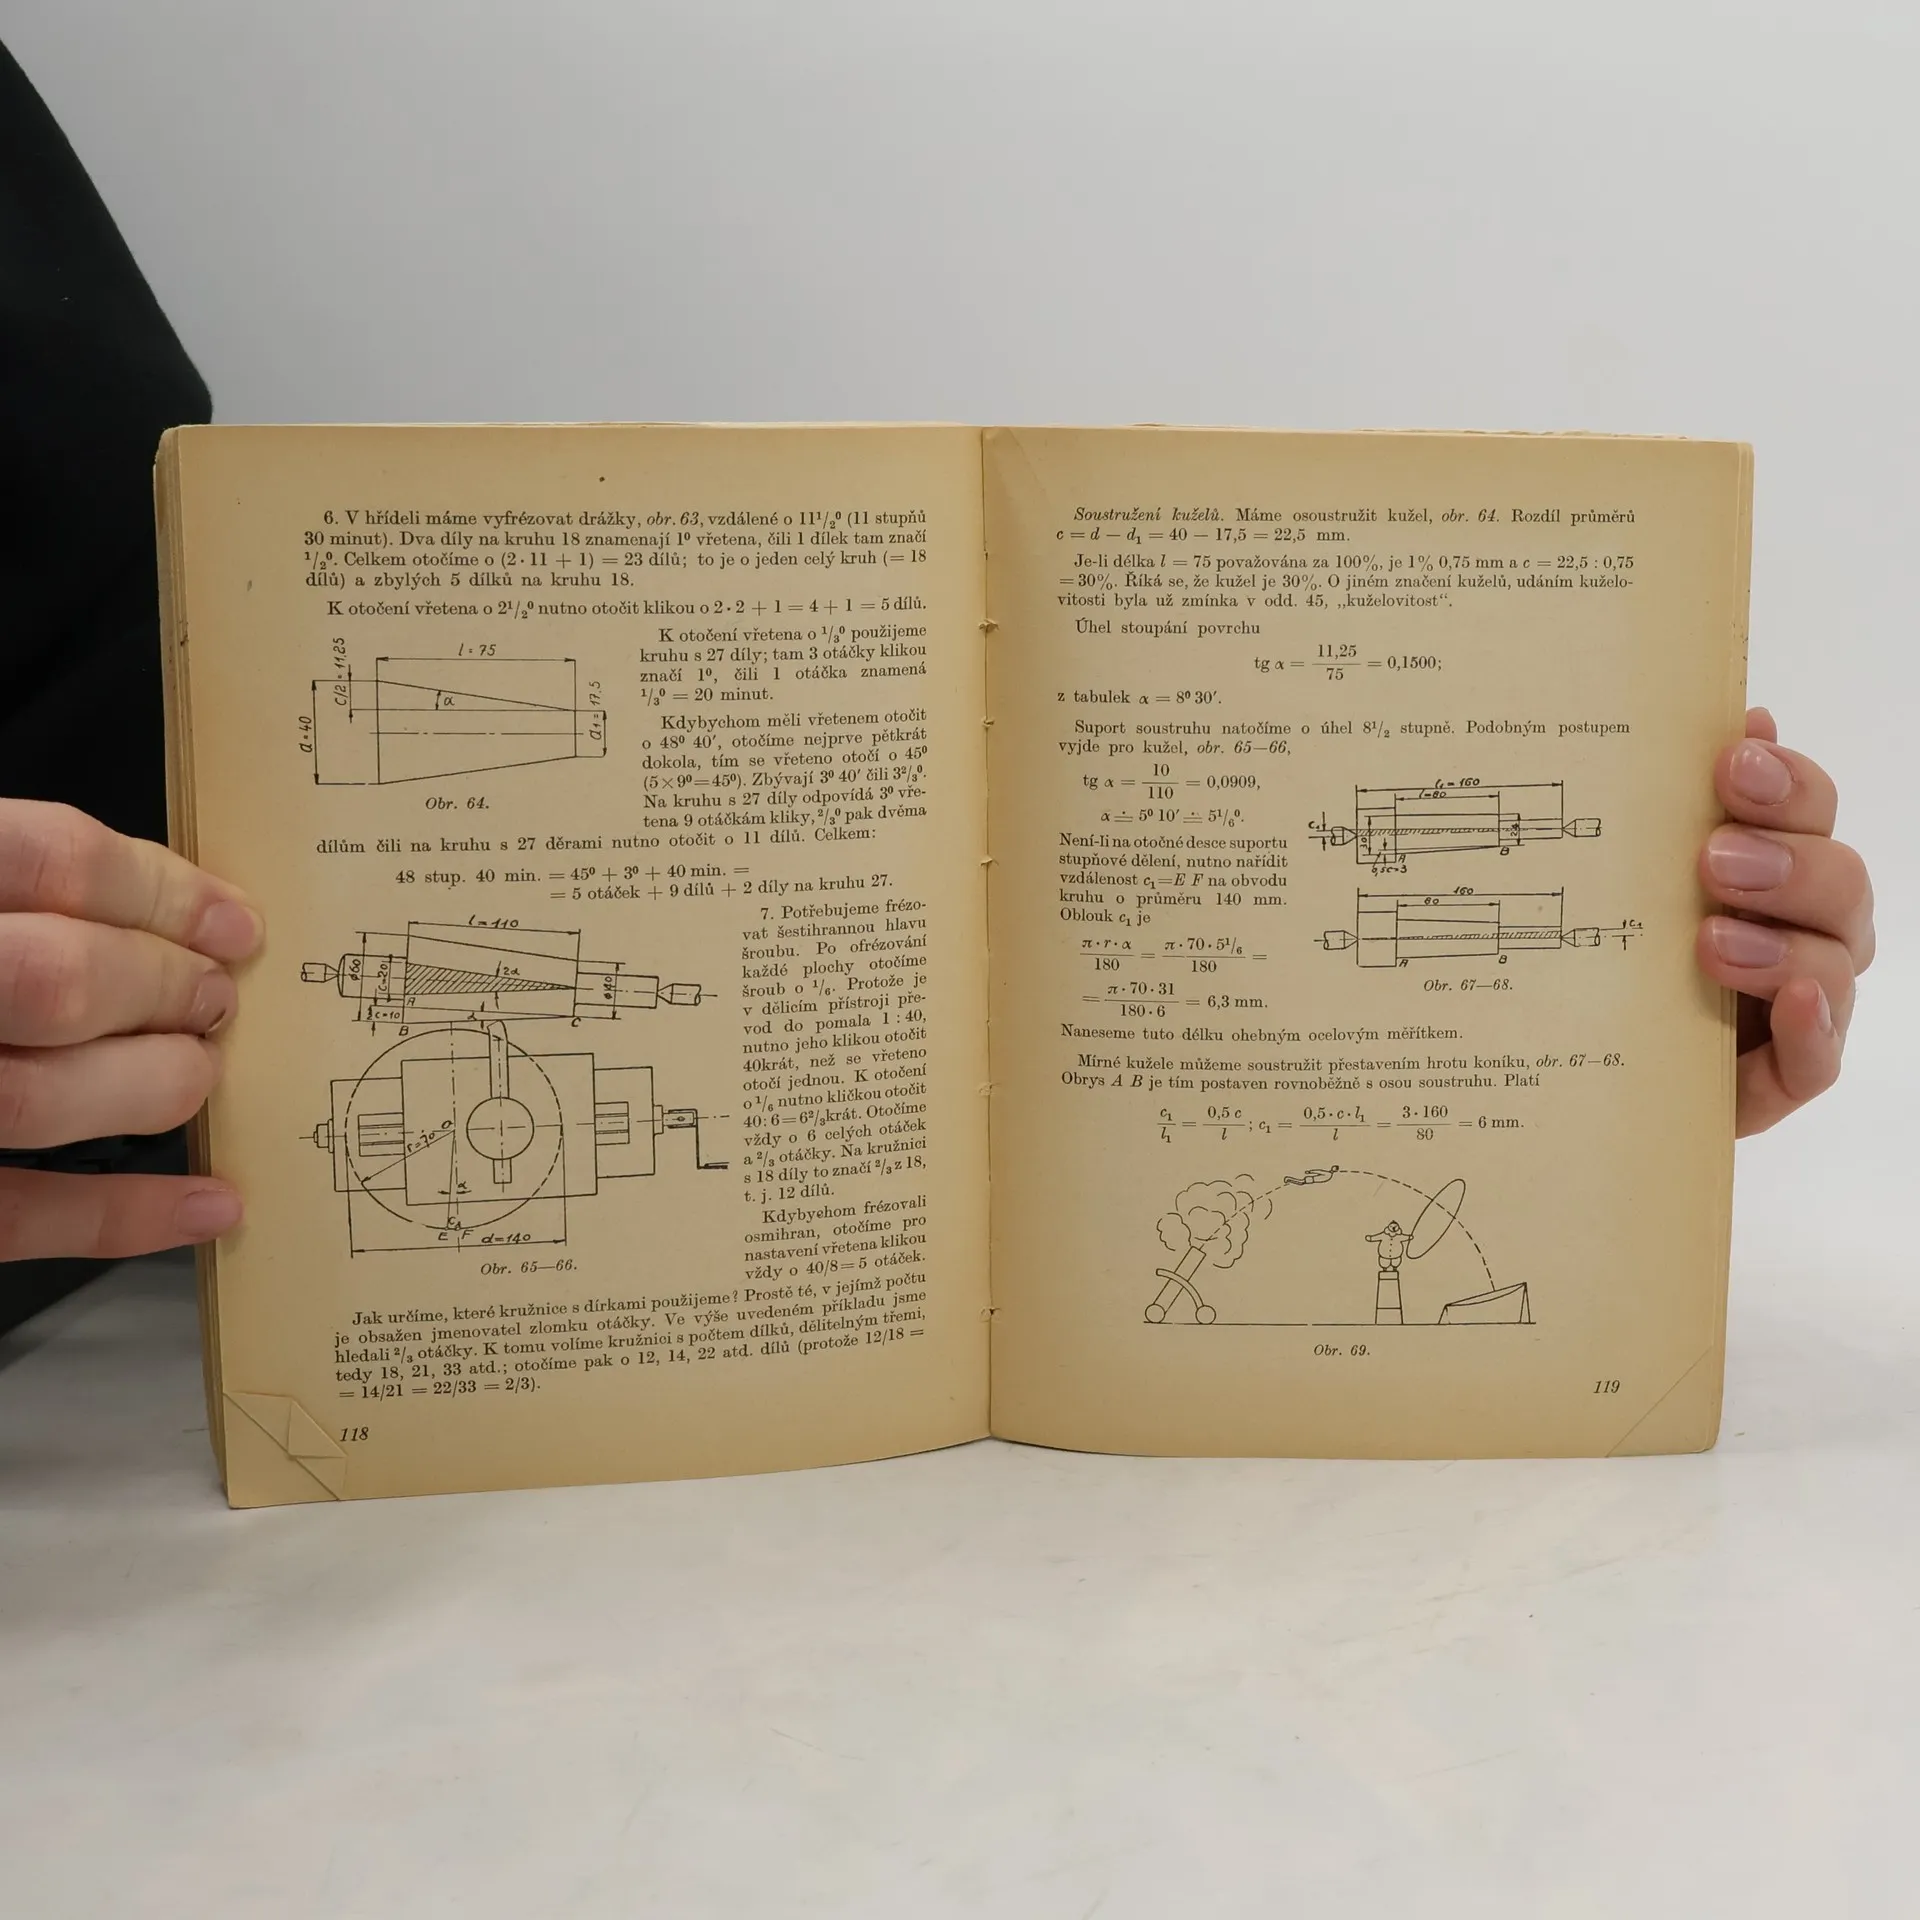 6. V hřídeli máme vyfrézovat drážky, obr. 63, vzdálené o 11¹/₂⁰ (11 stupňů
30 minut). Dva díly na kruhu 18 znamenají 1⁰ vřetena, čili 1 dílek tam značí
¹/₂⁰. Celkem otočíme o (2 · 11 + 1) = 23 dílů; to je o jeden celý kruh (= 18
dílů) a zbylých 5 dílků na kruhu 18.
K otočení vřetena o 2¹/₂⁰ nutno otočit klikou o 2 · 2 + 1 = 4 + 1 = 5 dílů.
K otočení vřetena o ¹/₃⁰ použijeme
kruhu s 27 díly; tam 3 otáčky klikou
značí 1⁰, čili 1 otáčka znamená
¹/₃⁰ = 20 minut.
Kdybychom měli vřetenem otočit
o 48⁰ 40′, otočíme nejprve pětkrát
dokola, tím se vřeteno otočí o 45⁰
(5×9⁰=45⁰). Zbývají 3⁰ 40′ čili 3²/₃⁰.
Na kruhu s 27 díly odpovídá 3⁰ vře-
tena 9 otáčkám kliky, ²/₃⁰ pak dvěma
l = 75
c/2 = 11,25
d = 40
α
d₁ = 17,5
Obr. 64.
dílům čili na kruhu s 27 děrami nutno otočit o 11 dílů. Celkem:
48 stup. 40 min. = 45⁰ + 3⁰ + 40 min. =
= 5 otáček + 9 dílů + 2 díly na kruhu 27.
7. Potřebujeme frézo-
vat šestihrannou hlavu
šroubu. Po ofrézování
každé plochy otočíme
šroub o ¹/₆. Protože je
v dělicím přístroji pře-
vod do pomala 1 : 40,
nutno jeho klikou otočit
40krát, než se vřeteno
otočí jednou. K otočení
o ¹/₆ nutno kličkou otočit
40 : 6 = 6²/₃krát. Otočíme
vždy o 6 celých otáček
a ²/₃ otáčky. Na kružnici
s 18 díly to značí ²/₃ z 18,
t. j. 12 dílů.
Kdybychom frézovali
osmihran, otočíme pro
nastavení vřetena klikou
vždy o 40/8 = 5 otáček.
l = 110
ø60
C=20
2α
A
c=10
B
α
C
O
r = 70
α
C₁
E F
d=140
Obr. 65—66.
Jak určíme, které kružnice s dírkami použijeme? Prostě té, v jejímž počtu
je obsažen jmenovatel zlomku otáčky. Ve výše uvedeném příkladu jsme
hledali ²/₃ otáčky. K tomu volíme kružnici s počtem dílků, dělitelným třemi,
tedy 18, 21, 33 atd.; otočíme pak o 12, 14, 22 atd. dílů (protože 12/18 =
= 14/21 = 22/33 = 2/3).
118
Soustružení kuželů. Máme osoustružit kužel, obr. 64. Rozdíl průměrů
c = d − d₁ = 40 − 17,5 = 22,5 mm.
Je-li délka l = 75 považována za 100%, je 1% 0,75 mm a c = 22,5 : 0,75
= 30%. Říká se, že kužel je 30%. O jiném značení kuželů, udáním kuželo-
vitosti byla už zmínka v odd. 45, „kuželovitost“.
Úhel stoupání povrchu
tg α = 11,25/75 = 0,1500;
z tabulek α = 8⁰ 30′.
Suport soustruhu natočíme o úhel 8¹/₂ stupně. Podobným postupem
vyjde pro kužel, obr. 65—66,
tg α = 10/110 = 0,0909,
α ≐ 5⁰ 10′ ≐ 5¹/₆⁰.
Není-li na otočné desce suportu
stupňové dělení, nutno nařídit
vzdálenost c₁ = E F na obvodu
kruhu o průměru 140 mm.
Oblouk c₁ je
π · r · α/180 = π · 70 · 5¹/₆/180 =
= π · 70 · 31/180 · 6 = 6,3 mm.
l₁ = 160
l=80
C₁
30
24
A
B
0,5c=3
160
80
C₁
A
B
Obr. 67—68.
Naneseme tuto délku ohebným ocelovým měřítkem.
Mírné kužele můžeme soustružit přestavením hrotu koníku, obr. 67—68.
Obrys A B je tím postaven rovnoběžně s osou soustruhu. Platí
c₁/l₁ = 0,5 c/l ; c₁ = 0,5 · c · l₁/l = 3 · 160/80 = 6 mm.
Obr. 69.
119